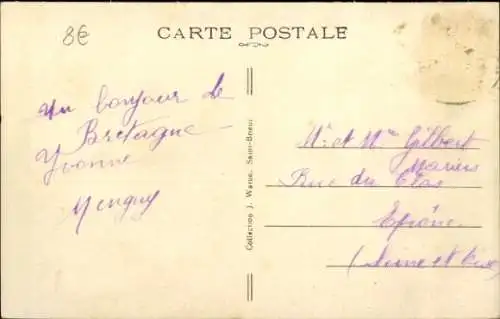 8€
CARTE POSTALE
Un bonjour de
Bretagne
Yvonne
Menguy
Collection J. Warne, Saint-Brieuc
Mr et Mme Gilbert
Marius
Rue du Clos
Epône
(Seine et Oise)